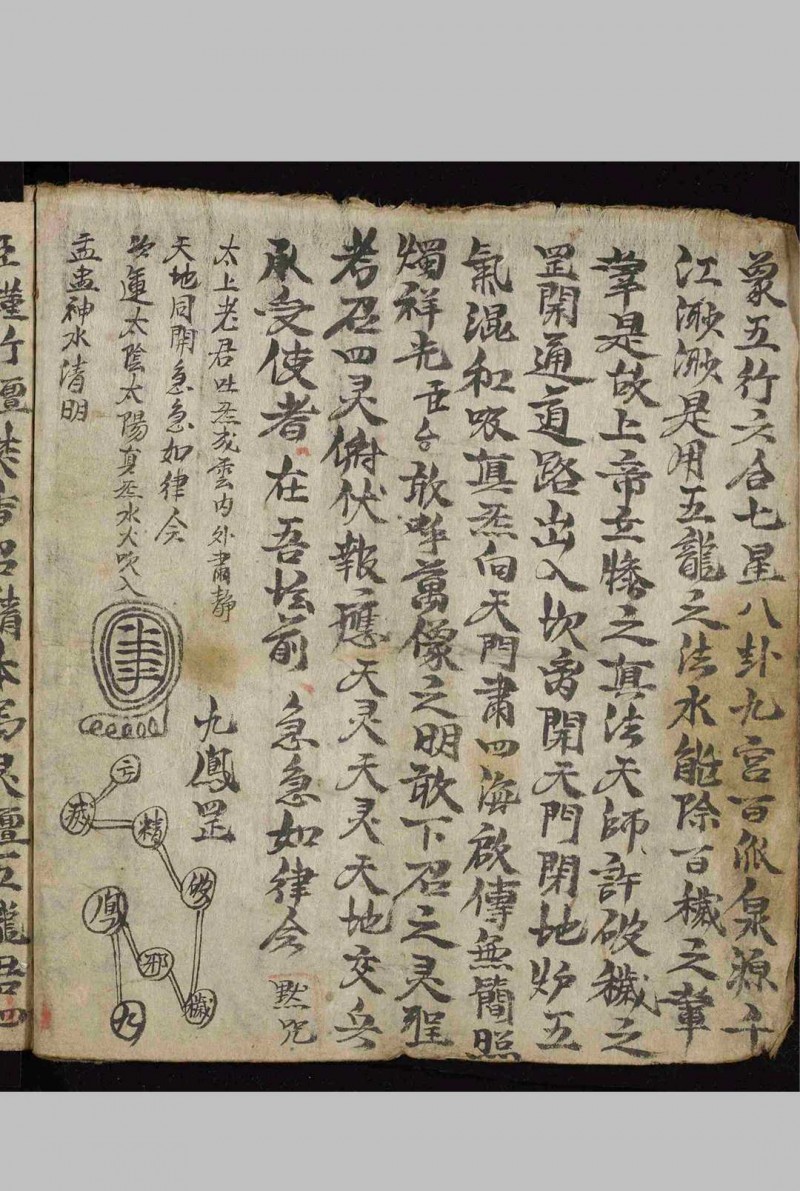 象五行六合七星八卦九宮百派泉源千
江渺渺是用五龍之法水能除百穢之葷
葷是故上帝立勝之真法天師許破穢之
罡開通道路出入坎离開天門閉地炉五
氣混和吸真炁向天門肅四海啟傳無簡照
燭祥光缶台敢呼萬像之明敢下召之灵聖
若召四灵俯伏報應天灵天灵天地交兵
承受使者在吾坛前急急如律令 默咒
太上老君吐炁成雲内外肅静
天地同開急急如律令
運太陰太陽真炁水火吹入
盂盅神水清明
九鳳罡
九
鳳
邪
穢
破
精
滅